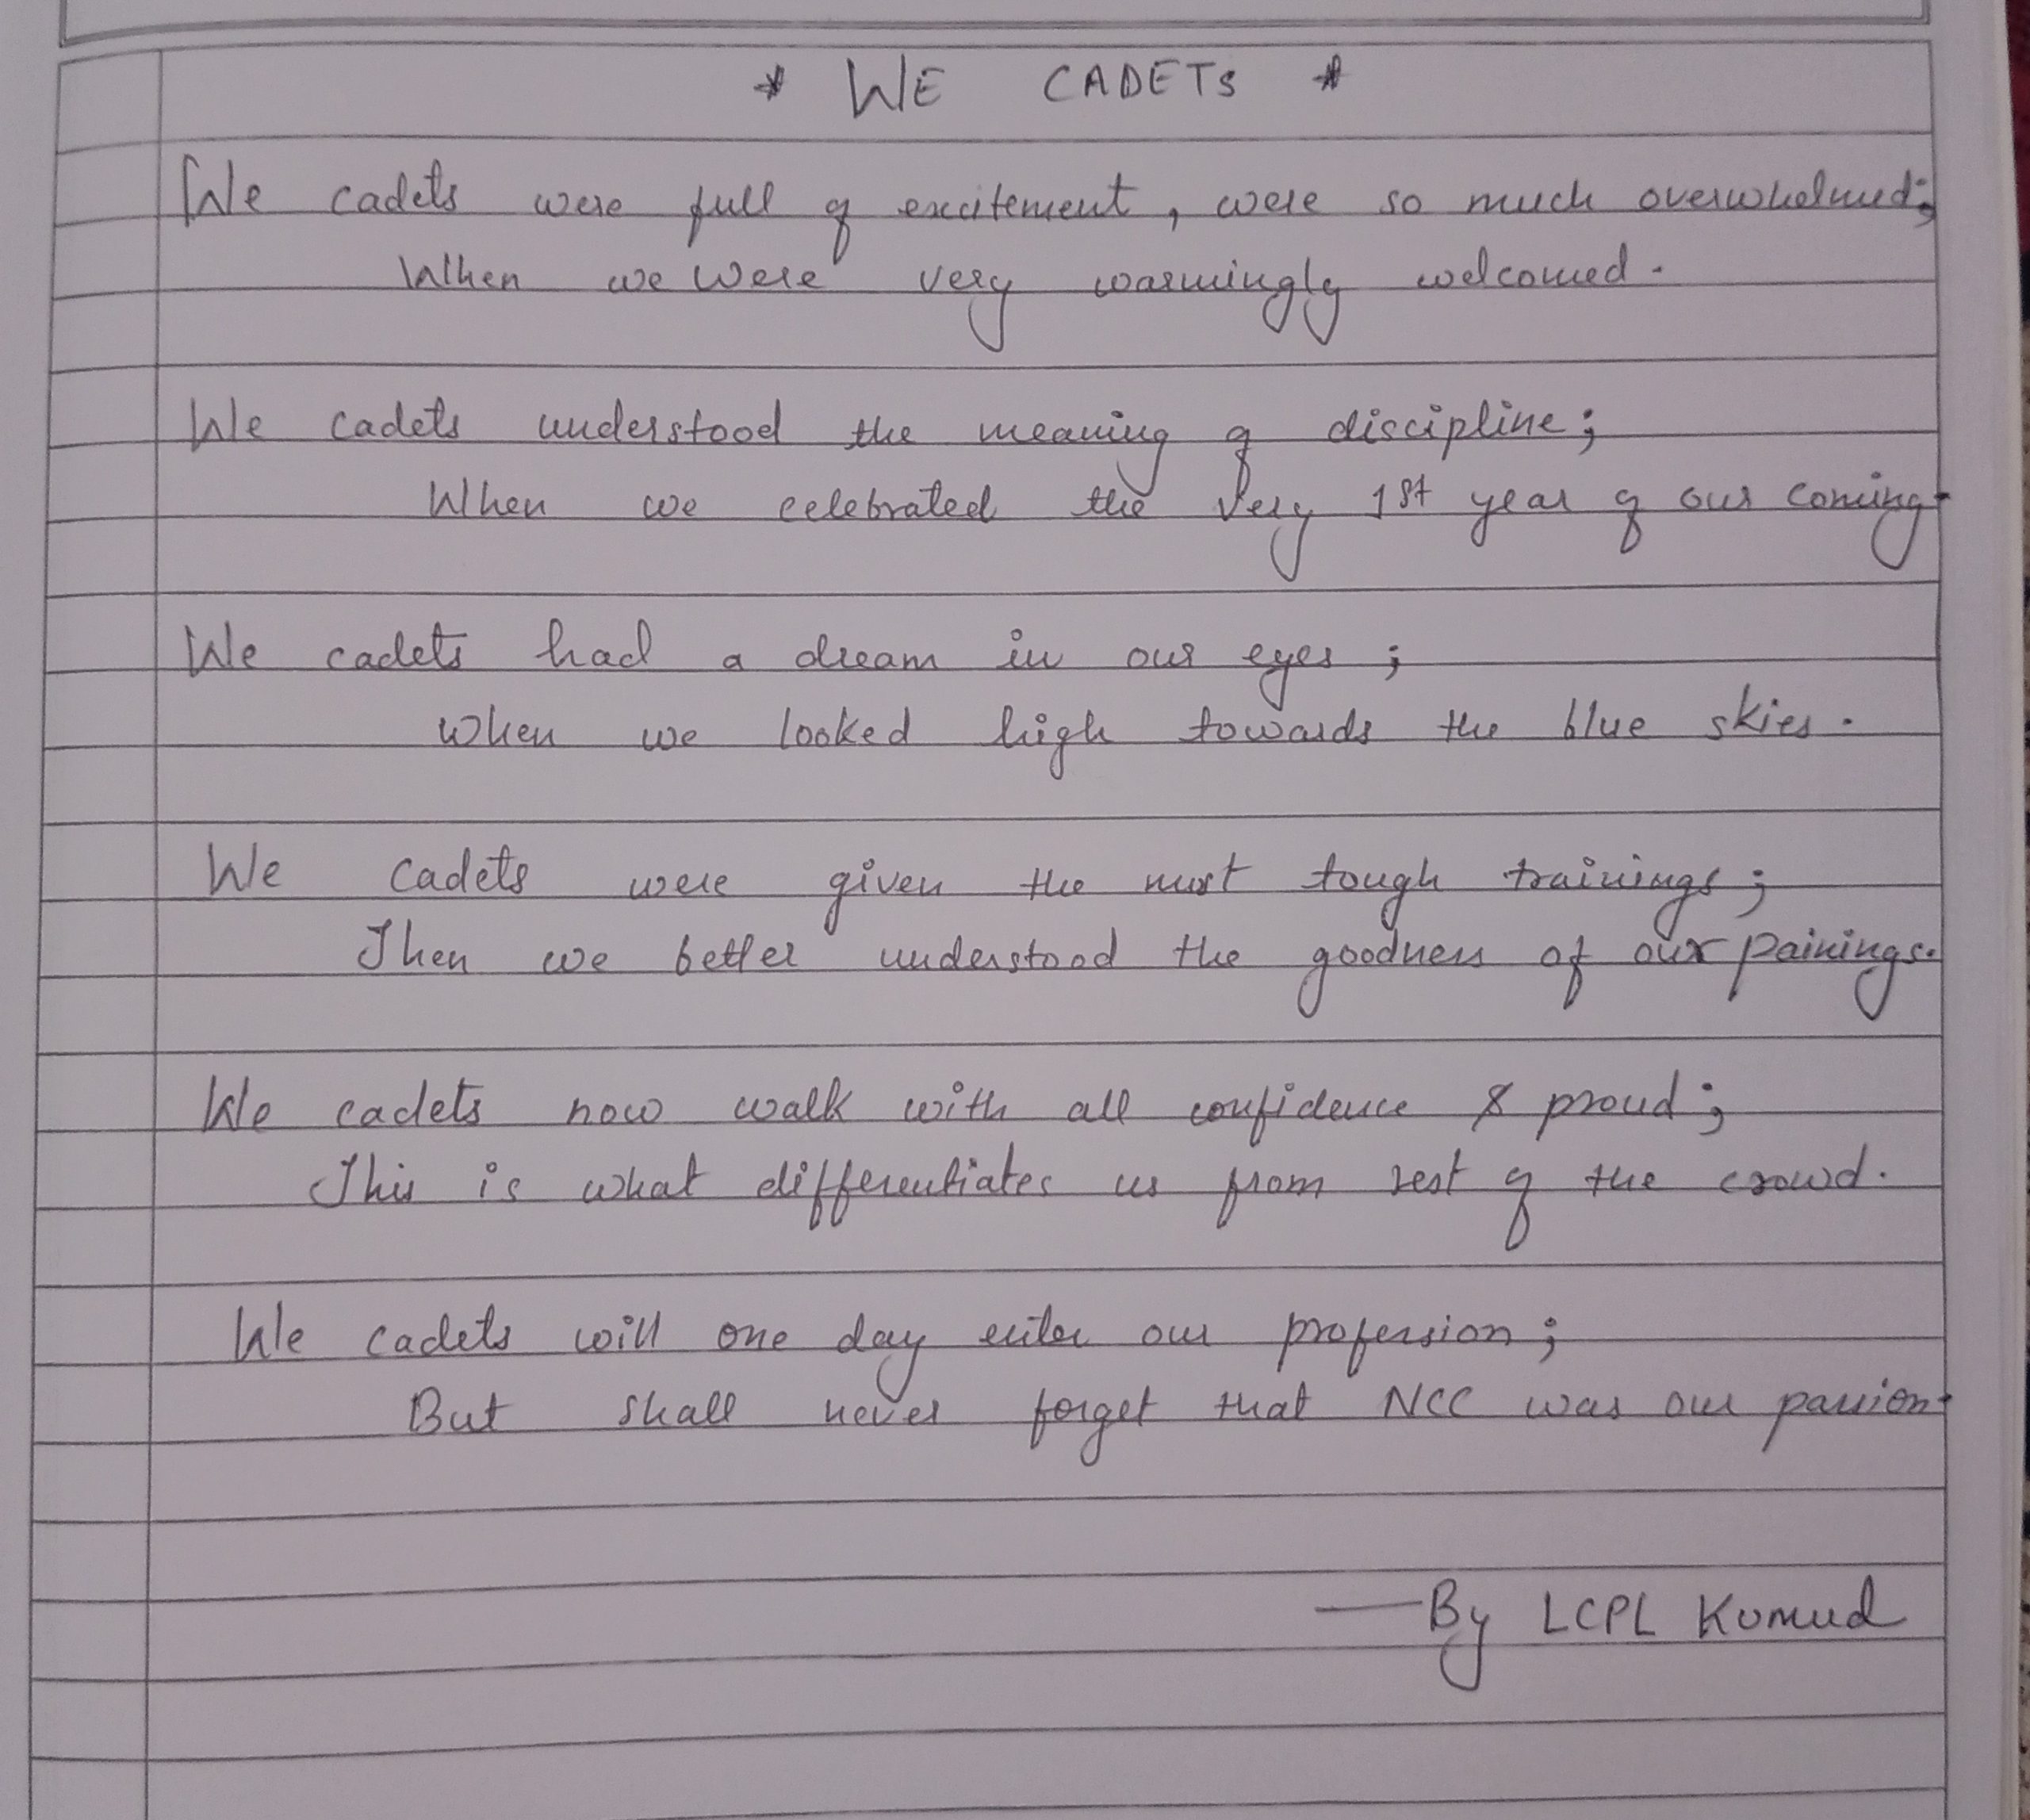 * WE CADETs *
We cadets were full of excitement, were so much overwhelmed;
When we were very warmingly welcomed.
We cadets understood the meaning of discipline;
When we celebrated the very 1st year of our coming.
We cadets had a dream in our eyes;
When we looked high towards the blue skies.
We cadets were given the most tough trainings;
Then we better understood the goodness of our painings.
We cadets now walk with all confidence & proud;
This is what differentiates us from rest of the crowd.
We cadets will one day enter our profession;
But shall never forget that NCC was our passion.
— By LCPL Kumud